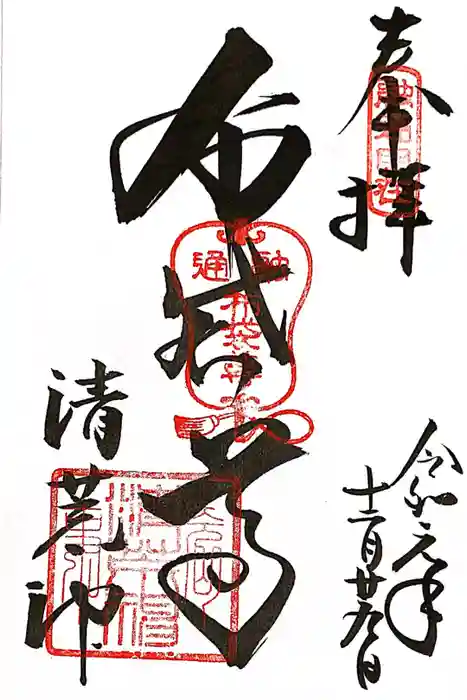 奉拝
布袋尊
清荒神
令和元年
十二月廿九日
融通